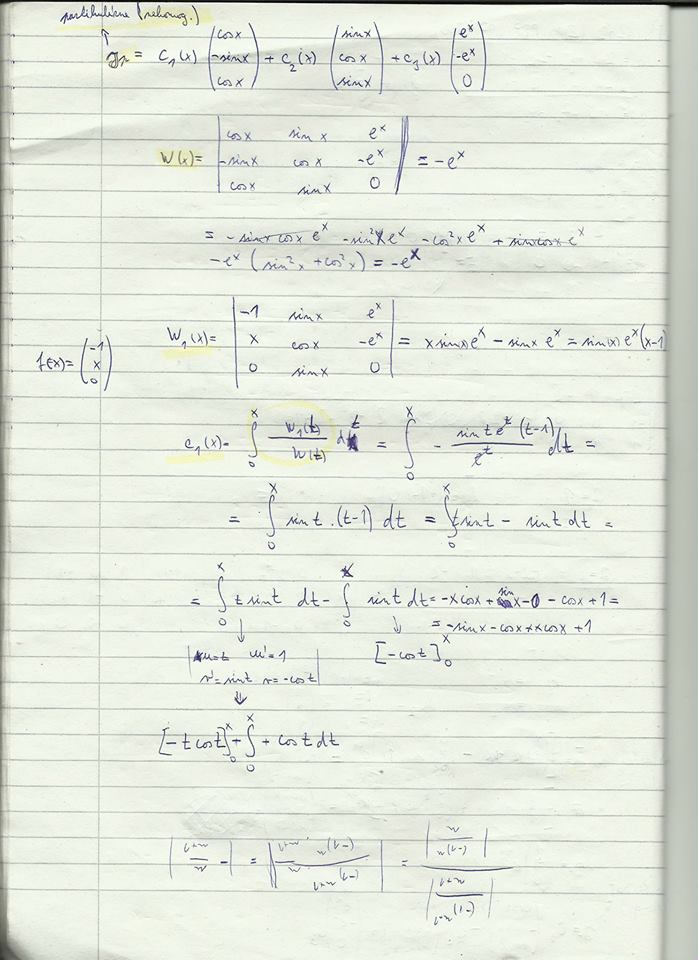 partikulárne (nehomog.)
y_p = c_1(x) (cosx -sinx cosx) + c_2(x) (sinx cosx sinx) + c_3(x) (e^x -e^x 0)
W(x) = | cosx sinx e^x | -sinx cosx -e^x | cosx sinx 0 | = -e^x
= -sinx cosx e^x - sin^2x e^x - cos^2x e^x + sinxcosx e^x
-e^x (sin^2x + cos^2x) = -e^x
f(x) = (-1 x 0) W_1(x) = | -1 sinx e^x | x cosx -e^x | 0 sinx 0 | = x sin(x) e^x - sinx e^x = sin(x) e^x (x-1)
c_1(x) = ∫_0^x W_1(t)/W(t) dt = ∫_0^x - sin t e^t (t-1)/e^t dt =
= ∫_0^x sin t . (t-1) dt = ∫_0^x t sin t - sin t dt =
= ∫_0^x t sin t dt - ∫_0^x sin t dt = -x cosx + sin x - 0 - cosx + 1 =
= -sinx - cosx + x cosx + 1
| u=t u'=1 [-cos t]_0^x
v'=sin t v=-cos t |
[-t cos t]_0^x + ∫_0^x + cos t dt